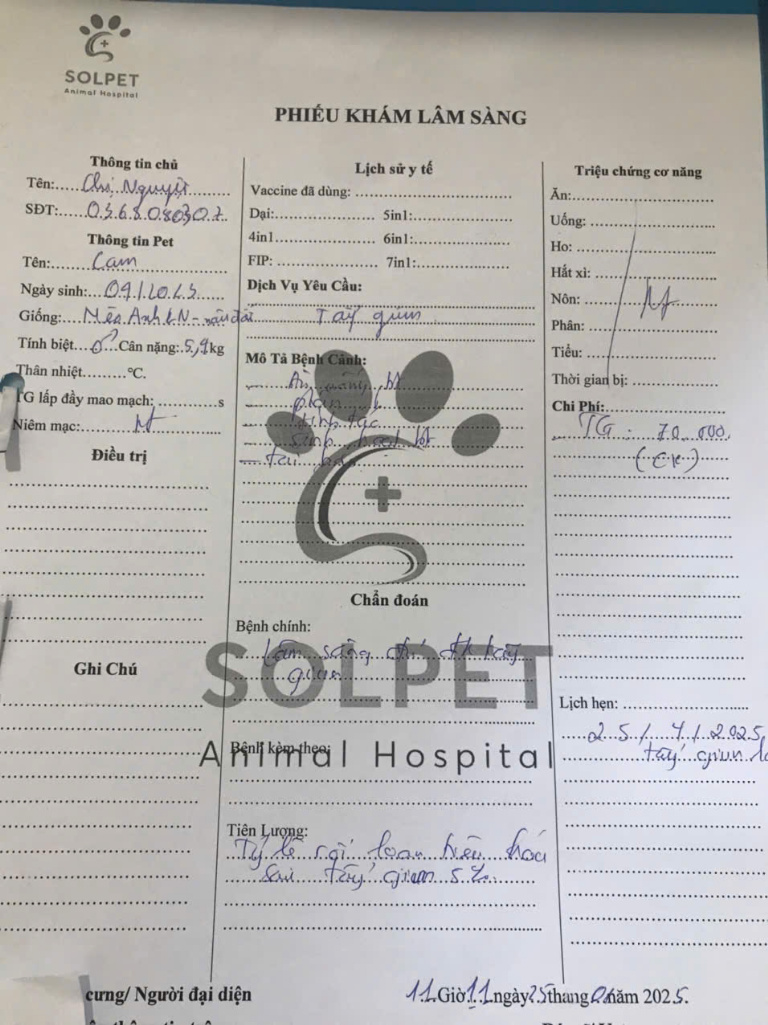 SOLPET
Animal Hospital
PHIẾU KHÁM LÂM SÀNG
Thông tin chủ
Tên: Chị Nguyệt
SĐT: 0368080307
Thông tin Pet
Tên: Cam
Ngày sinh: 09/2023
Giống: Mèo Anh LN -
Tính biệt ♂ Cân nặng: 5,9kg
Thân nhiệt °C.
TG lấp đầy mao mạch: s
Niêm mạc: N
Điều trị
Ghi Chú
Lịch sử y tế
Vaccine đã dùng:
Dại: 5in1:
4in1 6in1:
FIP: 7in1:
Dịch Vụ Yêu Cầu:
Tẩy giun
Mô Tả Bệnh Cảnh:
Ăn uống bt
phân
sinh hoạt bt
Chẩn đoán
Bệnh chính:
Lâm sàng
giun
SOLPET
Animal Hospital
Bệnh kèm theo:
Tiên Lượng:
Tỷ lệ rối loạn tiêu hóa
sau tẩy giun 5%.
Triệu chứng cơ năng
Ăn:
Uống:
Ho:
Hắt xì:
Nôn: N
Phân:
Tiểu:
Thời gian bị:
Chi Phí:
TG: 70.000
(CK)
Lịch hẹn:
25/7/2025
tẩy giun
cưng/ Người đại diện
11 Giờ 11 Ngày 25 tháng năm 2025.